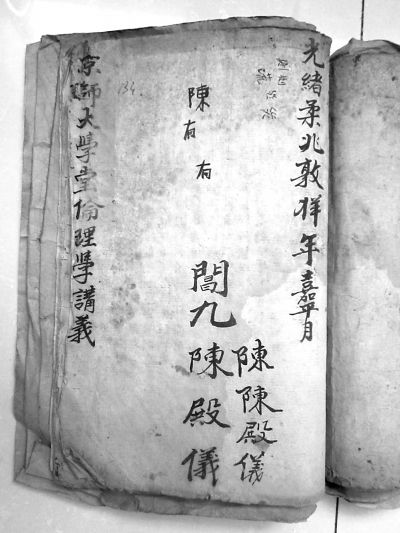 光緒柔兆敦牂年嘉平月
陳
陳殿儀
陳有有
閶九
陳殿儀
134
京師大學堂倫理學講義